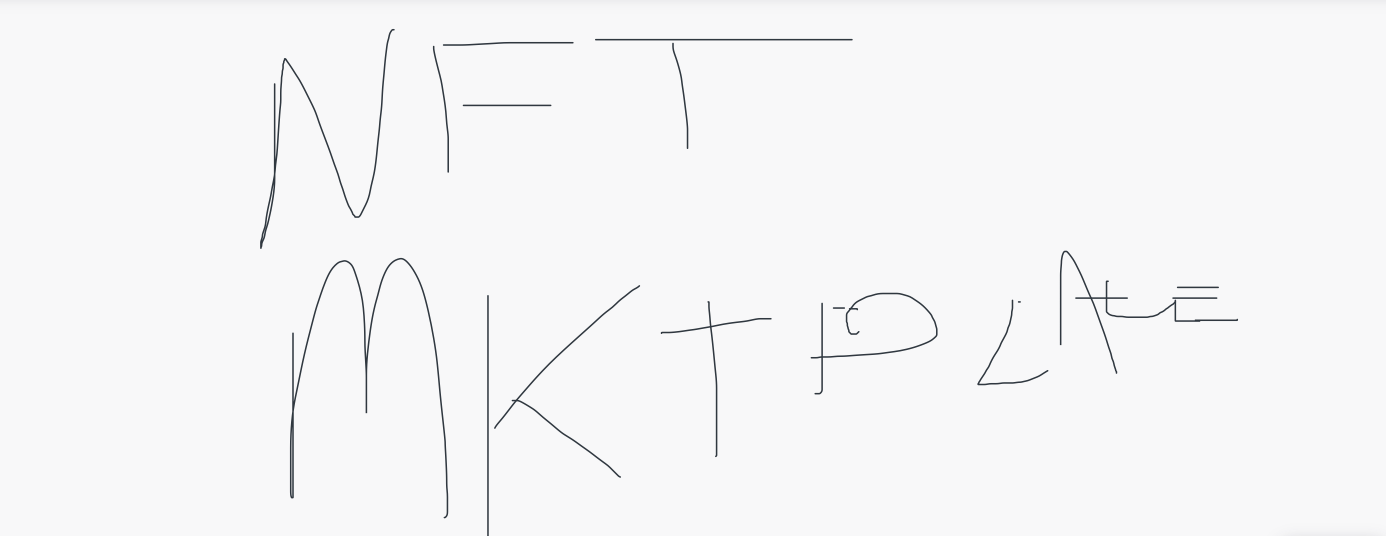 NFT
MKTPLACE